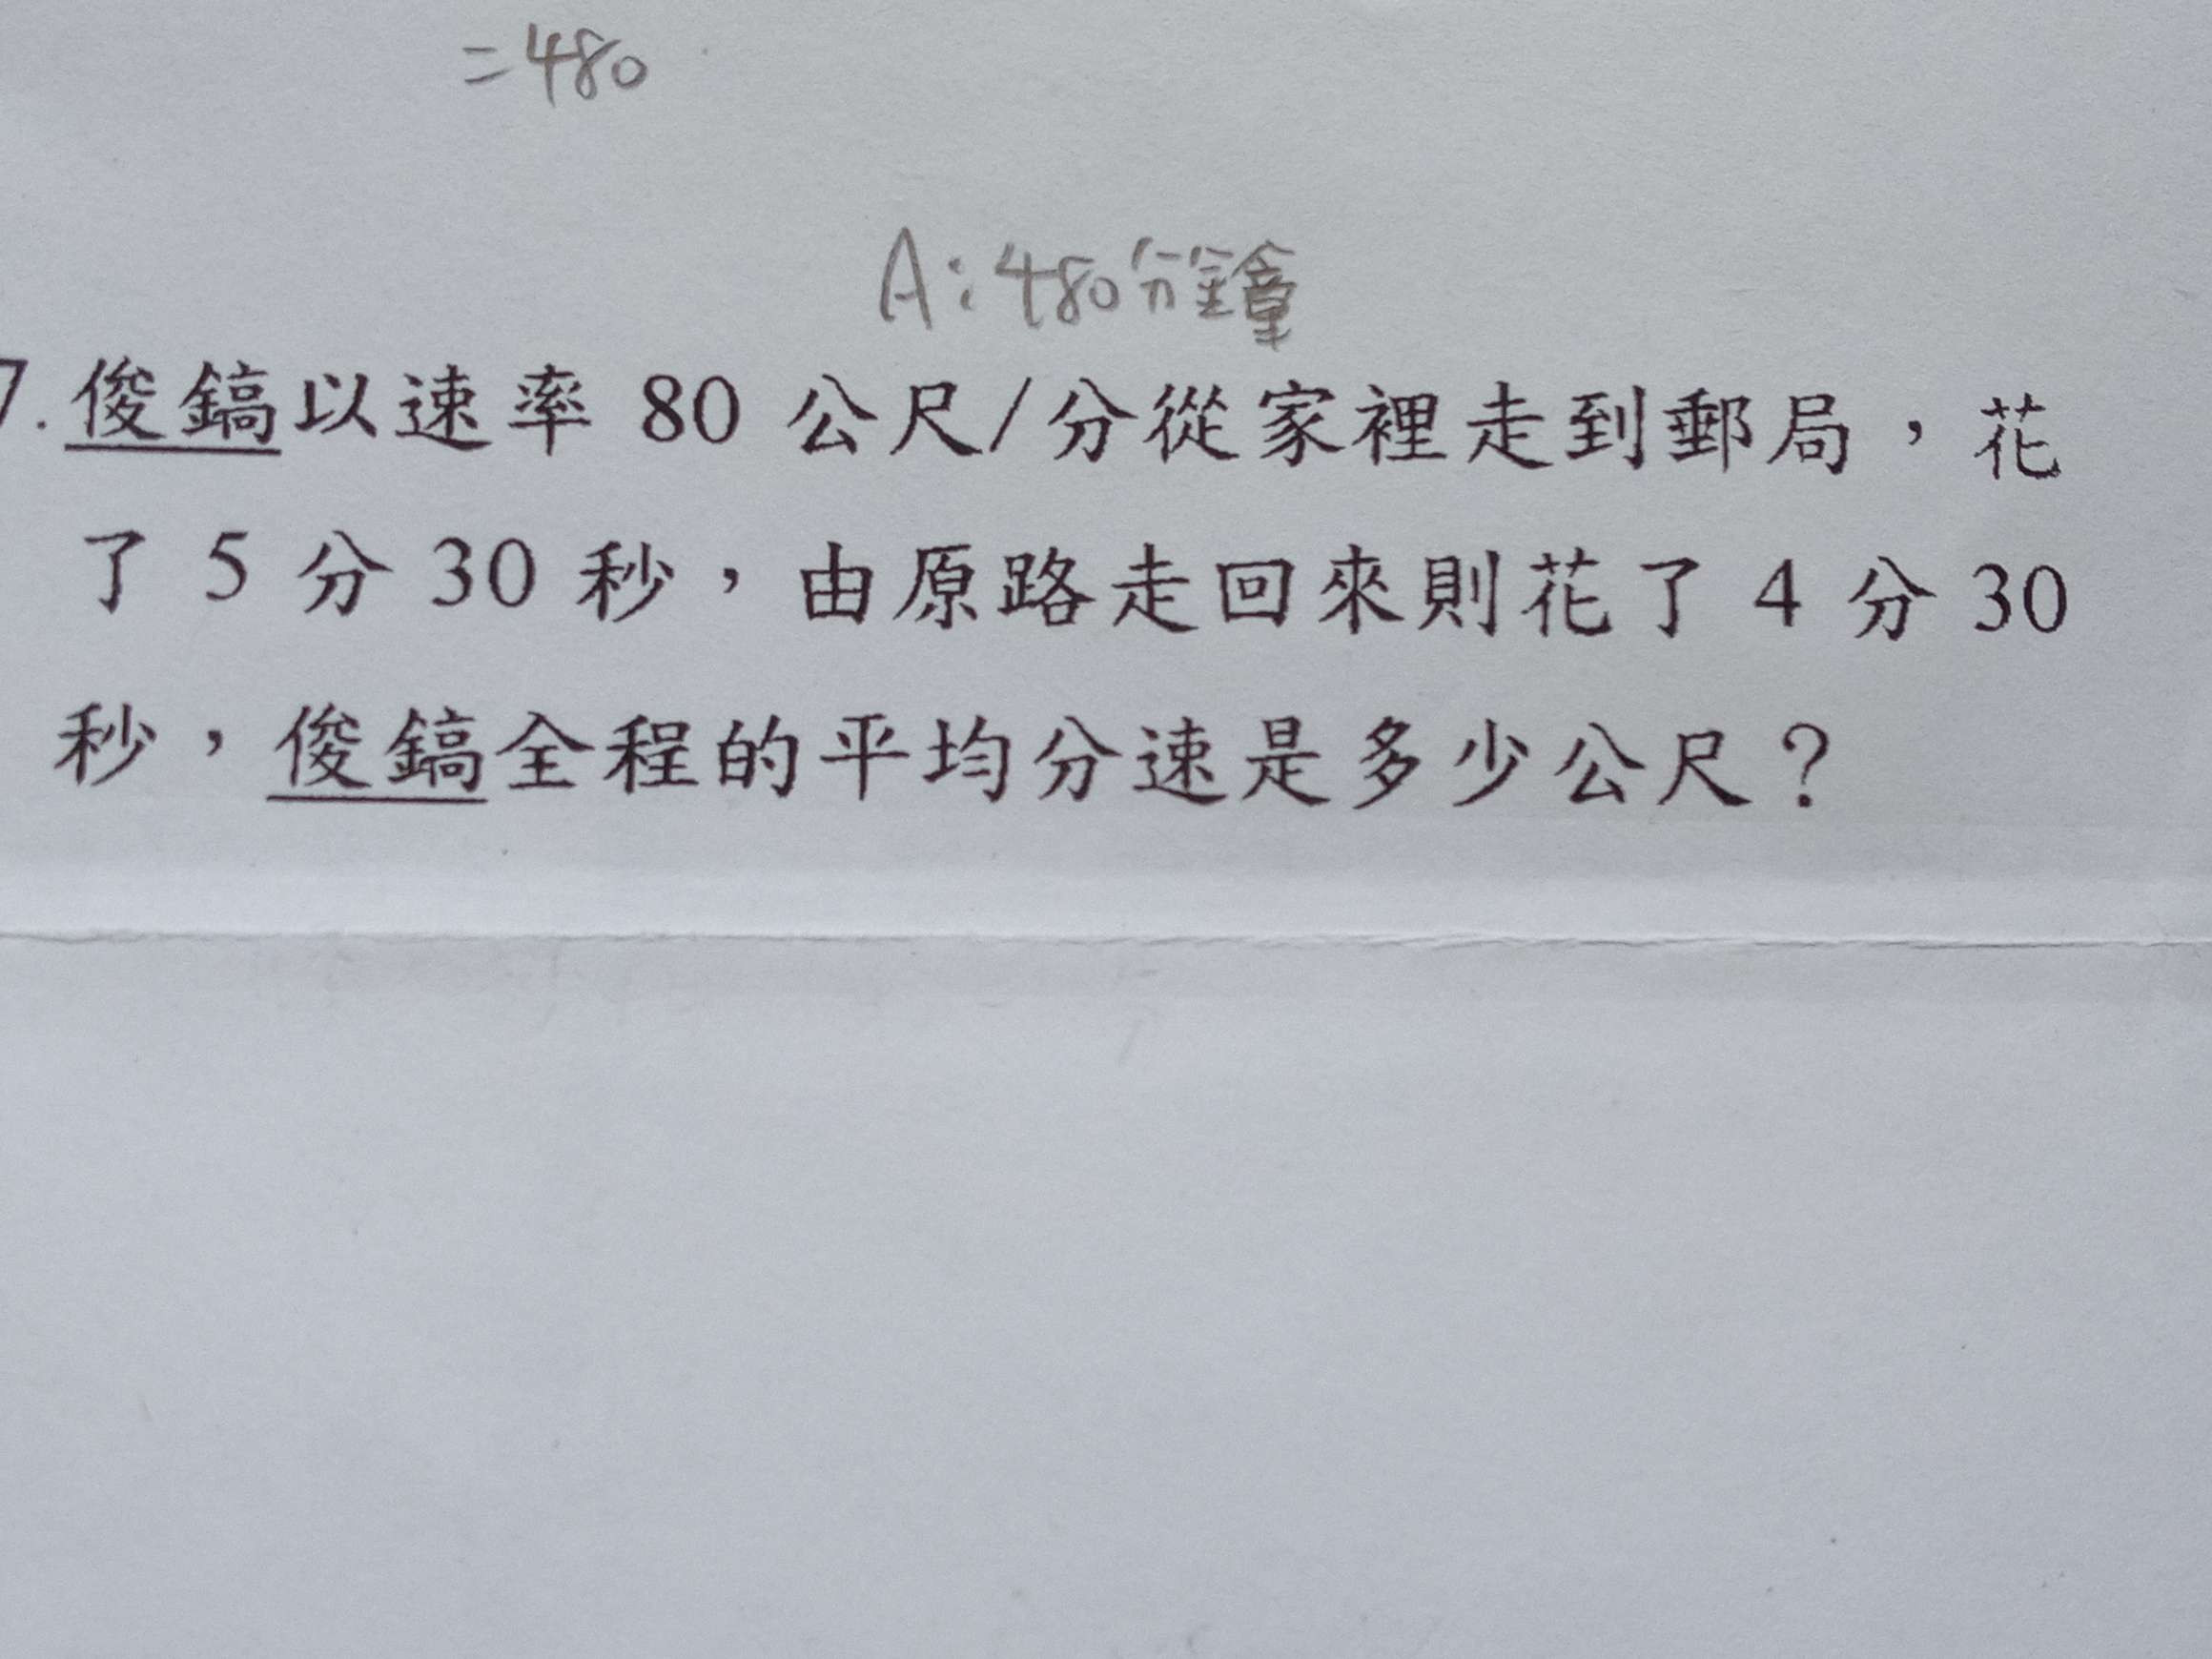 =480
A:480分鐘
7.俊鎬以速率 80 公尺/分從家裡走到郵局，花
了 5 分 30 秒，由原路走回來則花了 4 分 30
秒，俊鎬全程的平均分速是多少公尺？